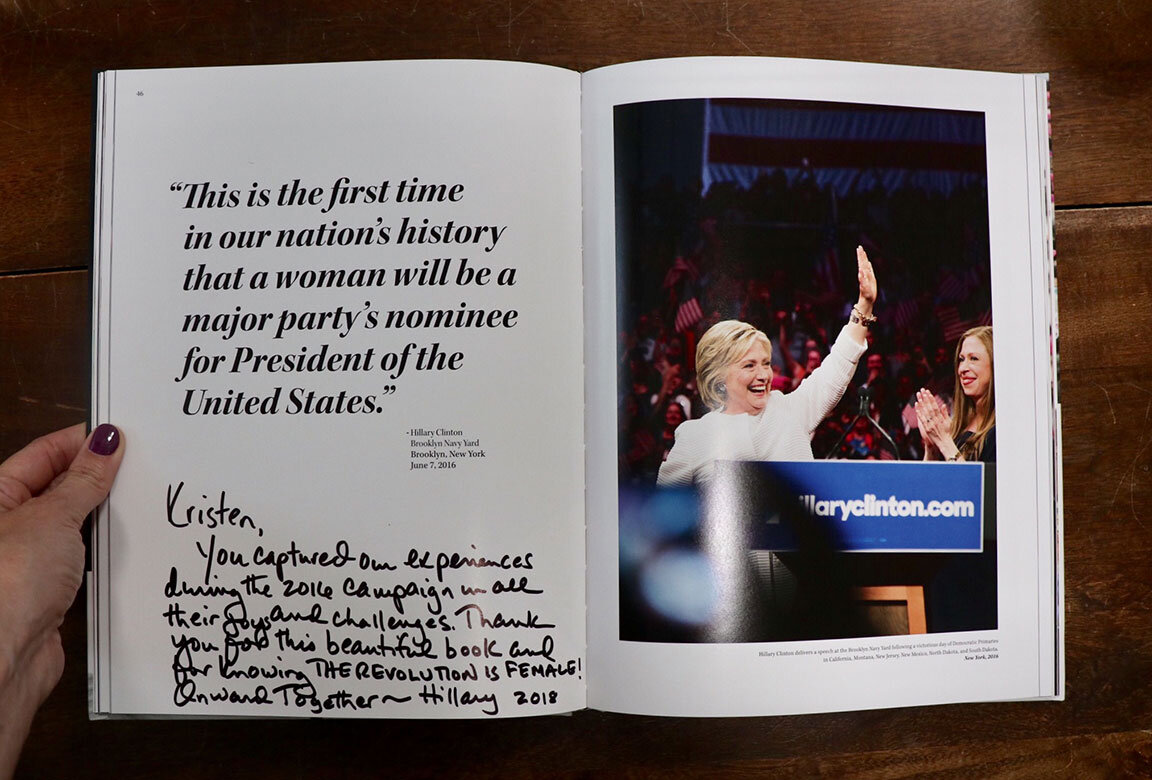 46
“This is the first time
in our nation’s history
that a woman will be a
major party’s nominee
for President of the
United States.”
- Hillary Clinton
Brooklyn Navy Yard
Brooklyn, New York
June 7, 2016
Kristen,
You captured our experiences
during the 2016 campaign in all
their joys and challenges. Thank
you for this beautiful book and
for knowing THE REVOLUTION IS FEMALE!
Onward Together~ Hillary 2018
illaryclinton.com
Hillary Clinton delivers a speech at the Brooklyn Navy Yard following a victorious day of Democratic Primaries
in California, Montana, New Jersey, New Mexico, North Dakota, and South Dakota.
New York, 2016